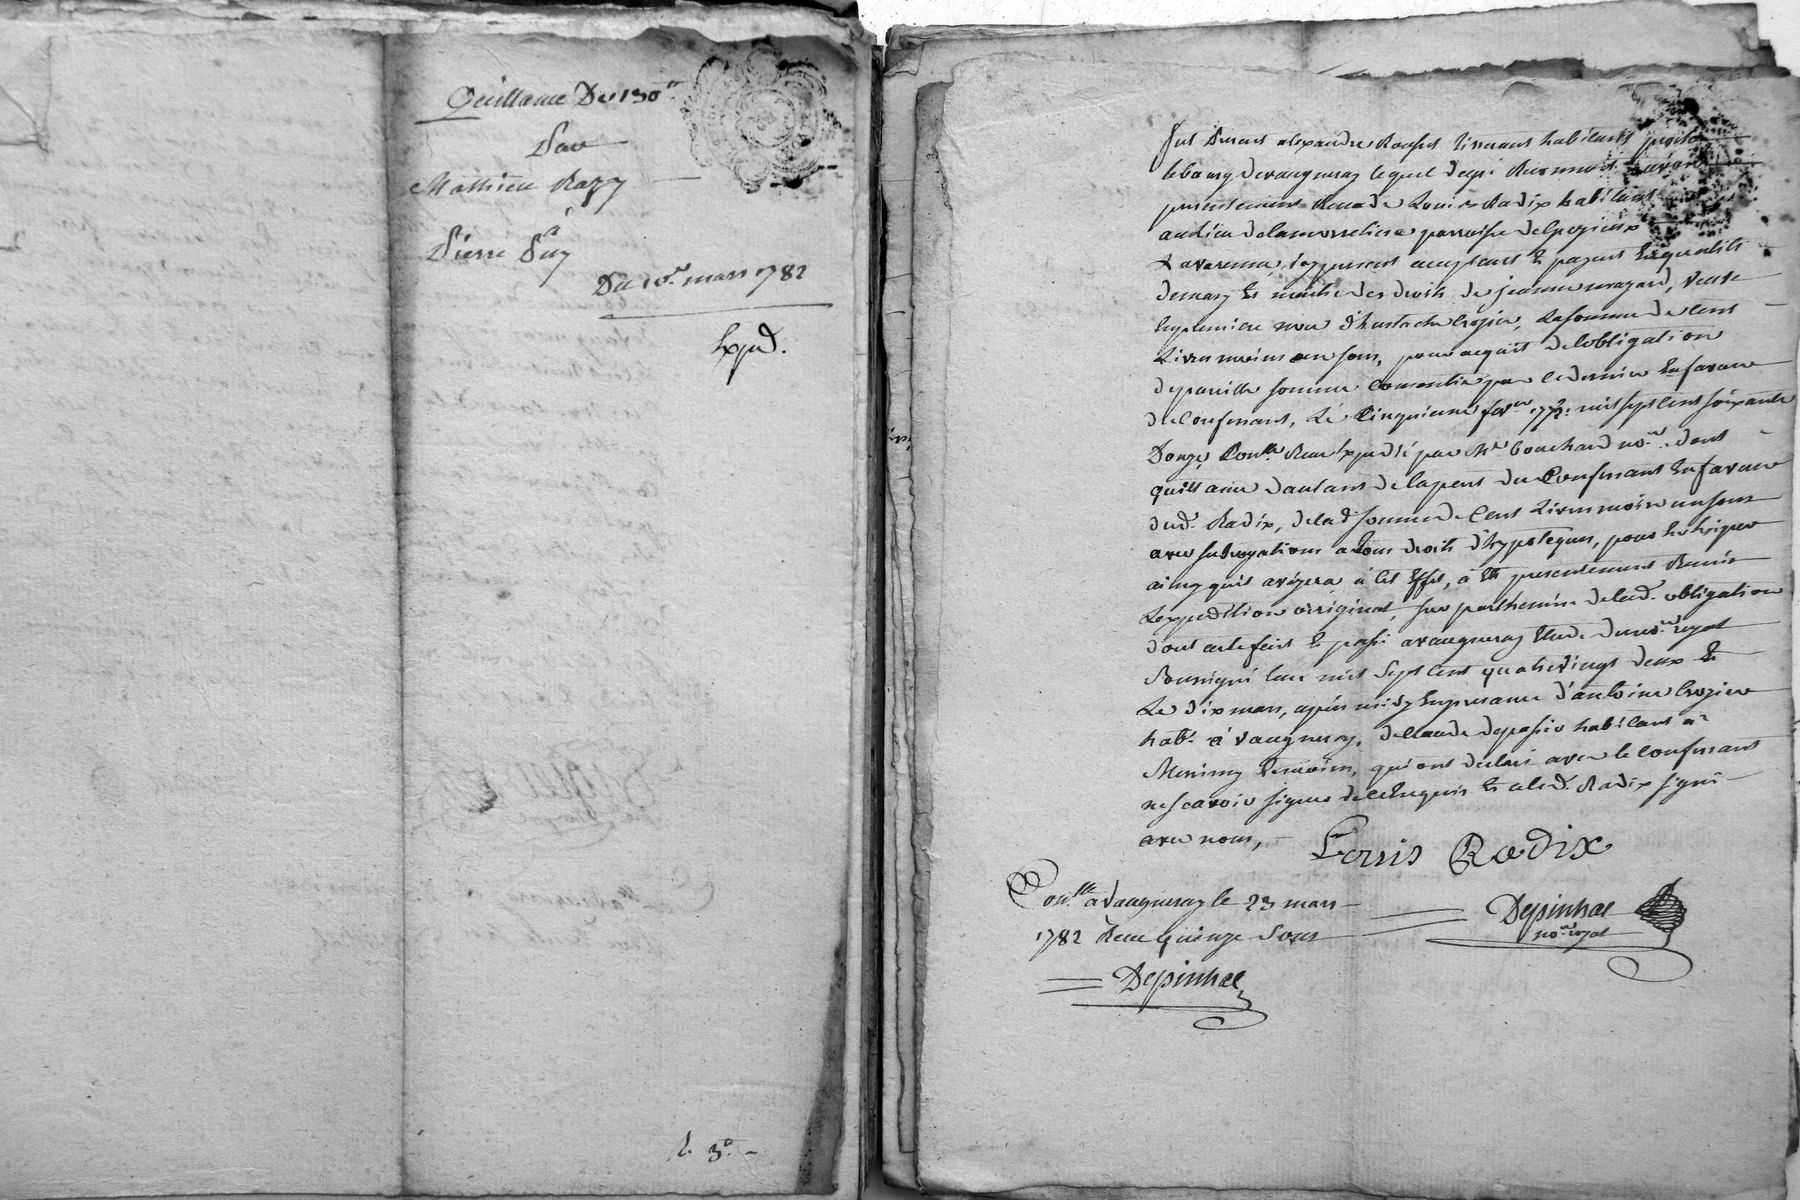 Quittance De 130ᵗᵗ
Par
Mathieu Razy
a
Pierre Puy
Du 10ᵉ. mars 1782
Exped.
R. 3ᵒ. -
fut Present alexandre tisserant habitant
lebourg devaugneray lequel degré
presentement Receu de Louis Radix habitant
aulieu delamorreliere parroisse de
acceptant & payant Enqualité
demary Et maitre des droits de jeanne veuve
Enpremiere noce d'Eustache Crozier, La somme de Cent
Livres moins un sous, pour acquit delobligation
depareille somme Consentie par cedernier Enfaveur
du Confessant, Le Cinquieme mil sept Cent soixante
Douze, Conᵗˡᵉ. Receu & Expedié par Mᵉ Bouchard noʳᵉ. dont
quittance dautant delapart du Confessant Enfaveur
dud. Radix, delad. somme de Cent Livres moins un sous
avec subrogation atous droits d'hypoteques, pour les Exiger
ainsy quil avizera, à Cet Effet, à Eté presentement Remis
Lexpedition original, sur parchemin deladᵗ. obligation
dont acte fait & passé avaugneray Etude dunoʳᵉ. royal
soussigné Lan mil sept Cent quatrevingt deux Et
Le dix mars, après midy Enpresence d'antoine Crozier
habᵗ. à vaugneray, declaude habitant à
Messimy temoins, qui ont declaré avec le Confessant
nescavoir signer de ceEnquis Et aledᵗ. Radix signé
avec nous, -
Louis Radix
Conᵗˡᵉ. aVaugneray le 23 mars
1782 Receu quinze Sous
Depinhac
noʳᵉ. royal
Depinhac